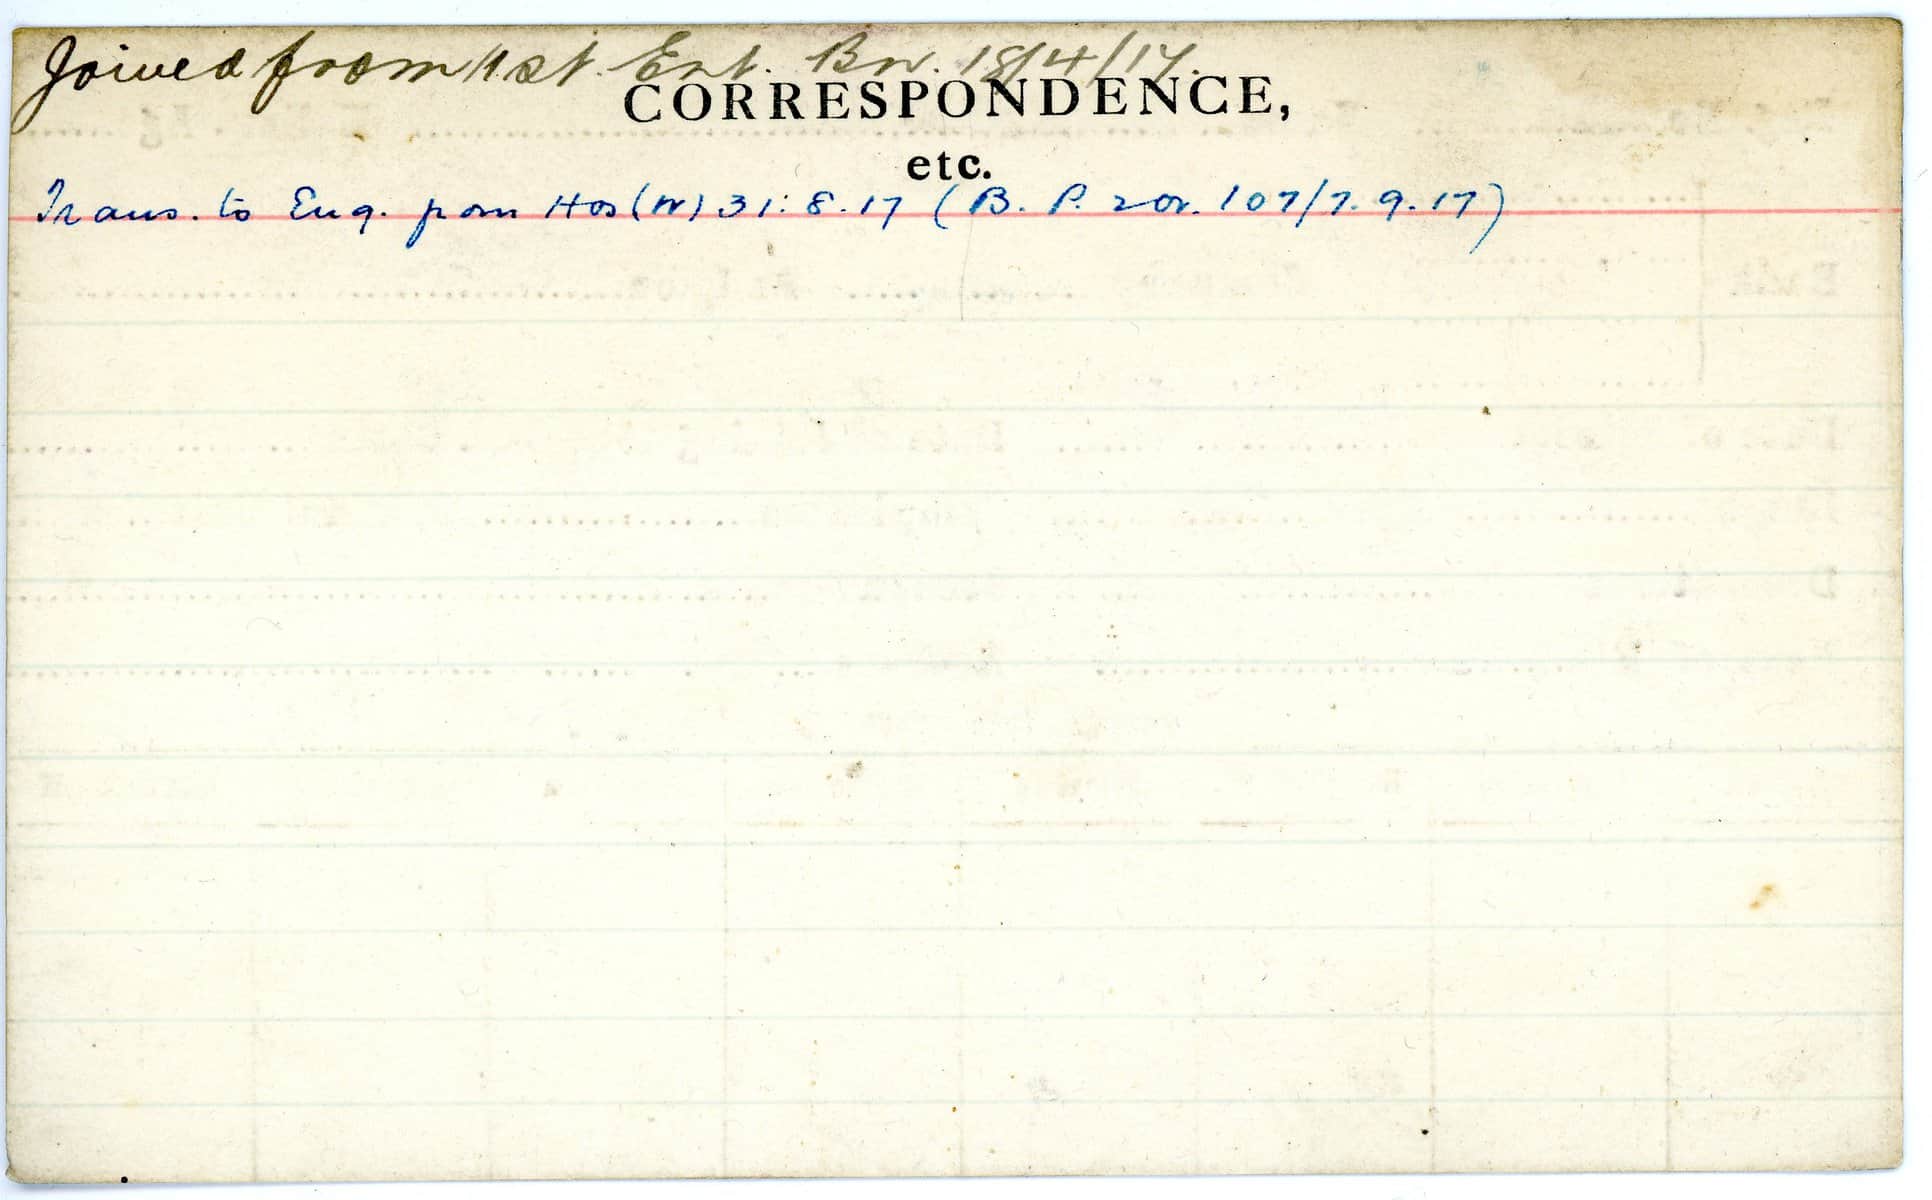 Joined from 1st. Ent. Bn. 18/4/17.
CORRESPONDENCE,
etc.
Trans. to Eng. from Hos (W) 31.8.17 (B. P. 201. 107/7.9.17)